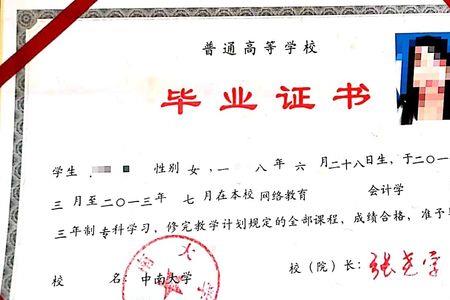 普通高等学校
毕业证书
学生 性别 女，一 八年 六月二十八日生，于二〇一
三月至二〇一三年 七月在本校 网络教育 会计学
三年制 专科学习，修完教学计划规定的全部课程，成绩合格，准予
校 名：中南大学 校（院）长：张尧学
南大学